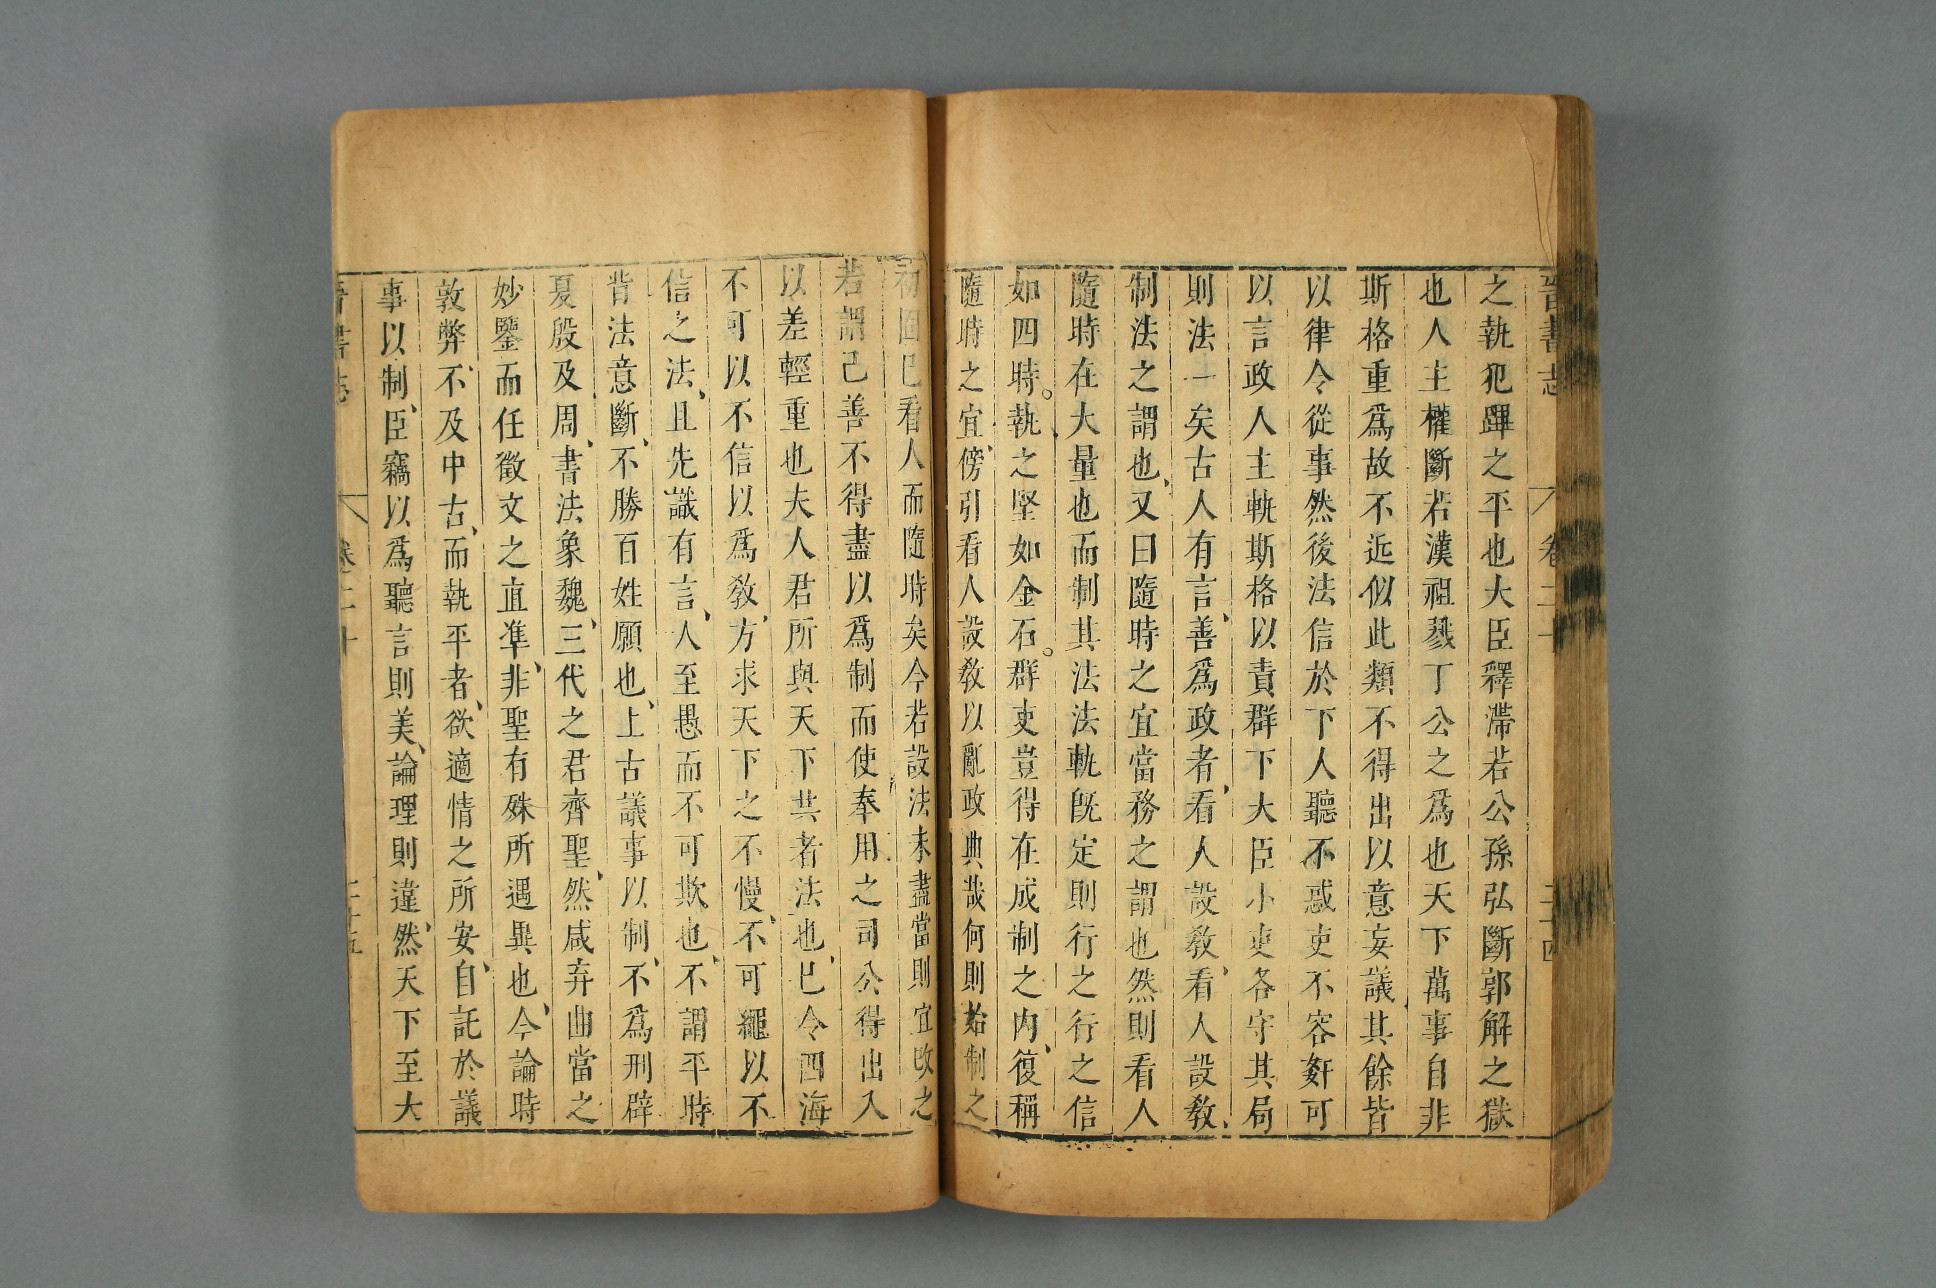 晉書志 卷二十 二十四
之執犯蹕之平也大臣釋滯若公孫弘斷郭解之獄
也人主權斷若漢祖戮丁公之爲也天下萬事自非
斯格重爲故不近似此類不得出以意妄議其餘皆
以律令從事然後法信於下人聽不惑吏不容姧可
以言政人主軌斯格以責群下大臣小吏各守其局
則法一矣古人有言善爲政者看人設敎看人設敎
制法之謂也又曰隨時之宜當務之謂也然則看人
隨時在大量也而制其法法軌旣定則行之行之信
如四時執之堅如金石群吏豈得在成制之内復稱
隨時之宜傍引看人設敎以亂政典哉何則始制之
初固已看人而隨時矣今若設法未盡當則宜改之
若謂已善不得盡以爲制而使奉用之司公得出入
以差輕重也夫人君所與天下共者法也已令四海
不可以不信以爲敎方求天下之不慢不可繩以不
信之法且先識有言人至愚而不可欺也不謂平時
背法意斷不勝百姓願也上古議事以制不爲刑辟
夏殷及周書法象魏三代之君齊聖然咸弃曲當之
妙鑒而任徵文之直準非聖有殊所遇異也今論時
敦弊不及中古而執平者欲適情之所安自託於議
事以制臣竊以爲聽言則美論理則違然天下至大
晉書志 卷二十 二十五